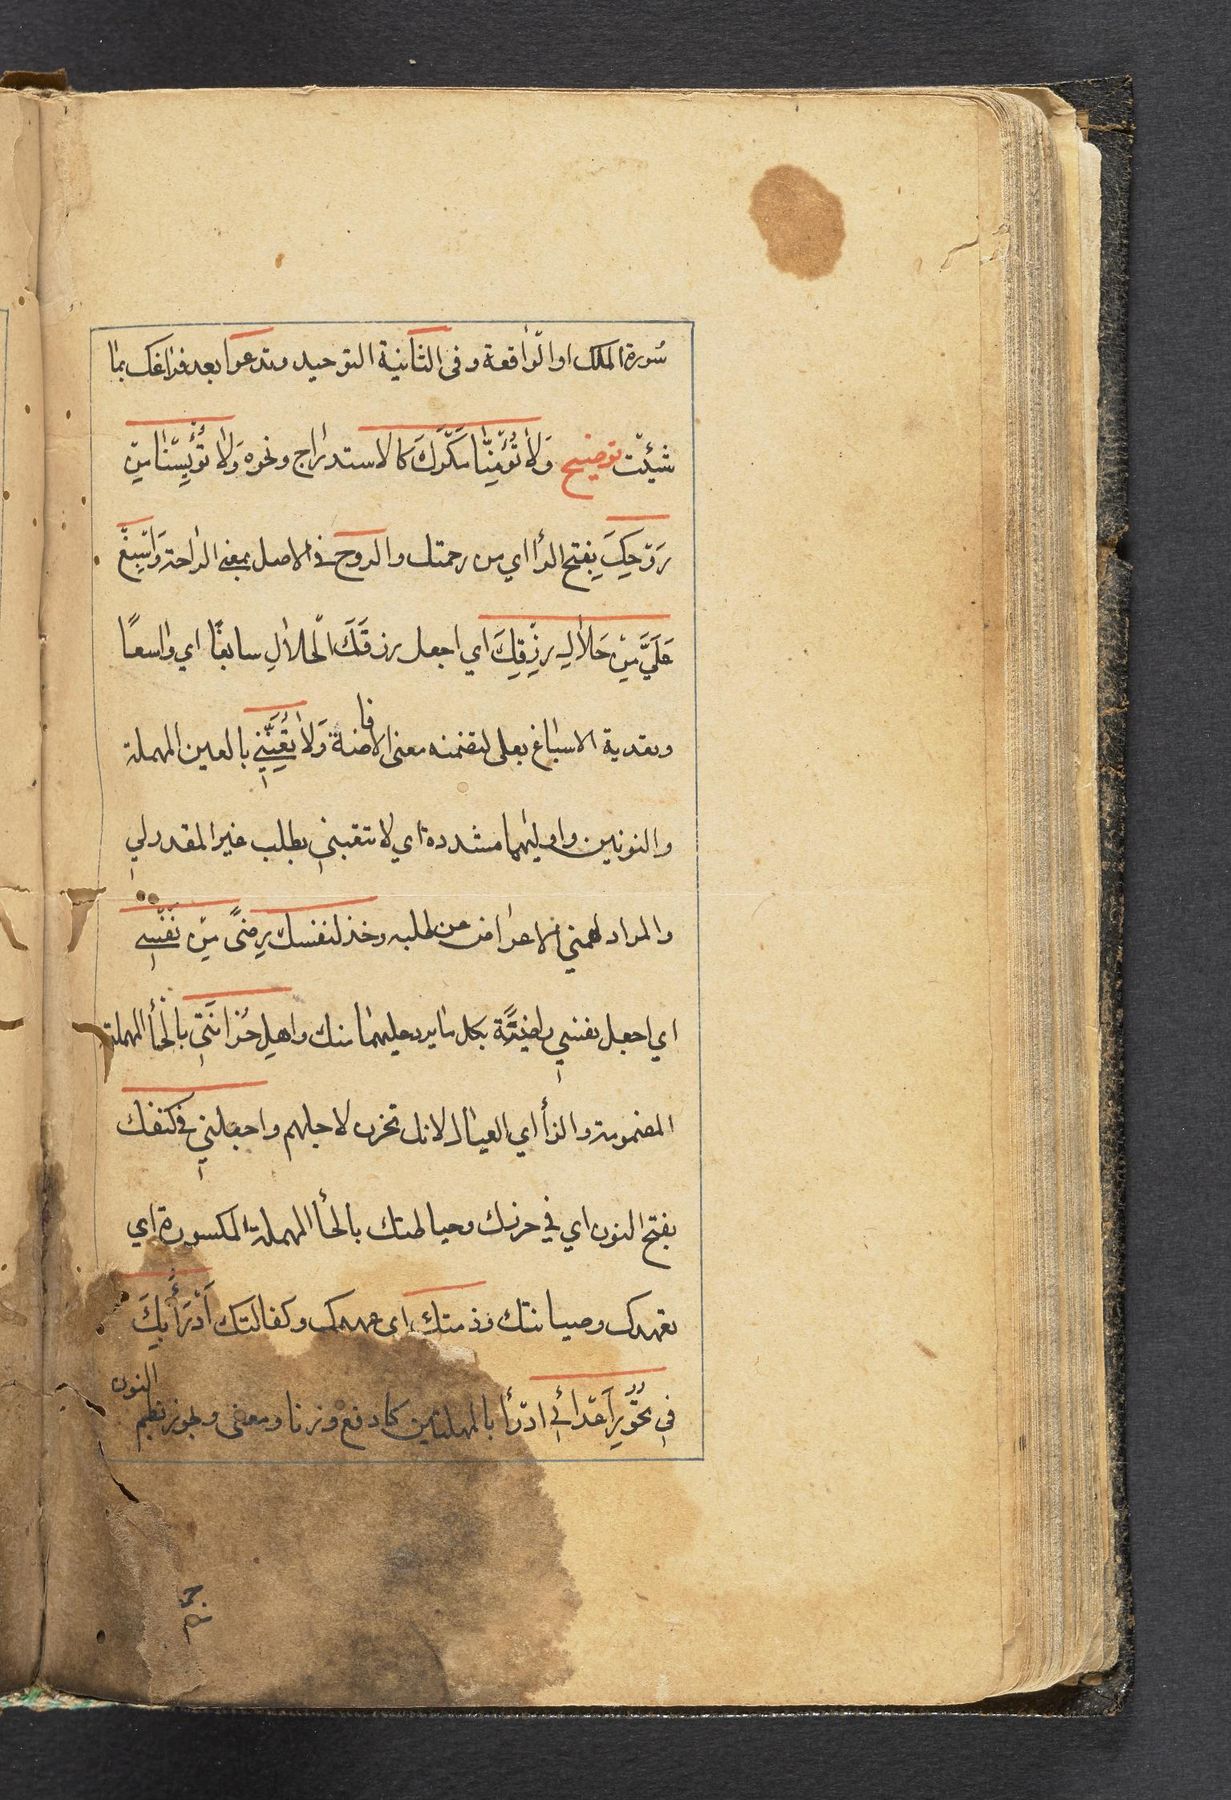 سُورة الملك او الواقعة وفى الثانية التوحيد وتدعوا بعد فراغك بما
شئت توضيح وَلاٰ تُؤْمِنّٰا مَكْرَكَ كالاستدراج ونحوه وَلاٰ تُؤْيِسْنٰا مِنْ
رَوْحِكَ بفتح الرأ اي من رحمتك والروح فى الاصل بمعنى الراحة وَاَسْبِغْ
عَلَيَّ مِنْ حَلاٰلِ رِزْقِكَ اي اجعل رزقَكَ الْحلاٰلِ سابغًا اي واسعًا
وتعدية الاسباغ بعلى لتضمنه معنى الافاضة وَلاٰ تُعَنِّنِي بالعين المهملة
والنونين واوليٰهما مشددة اي لا تتعبني بطلب غير المقدر لي
والمراد لهمني الاعراض عن طلبه وخذ لنفسك رِضىً مِنْ نَفْسِي
اي اجعل نفسي راضِيَةً بكل ما يرد عليهما منك واهلِ حُزانَتي بالحأ المهملة
المضمومة والزأ اي العيال لانك تحزن لاجلهم واجعلني فى كنفك
بفتح النون اي في حرزك وحياطتك بالحأ المهملة المكسورة اي
تعهدك وصيانتك وذمتك اى عهدك وكفالتك اَدْرَأُ بِكَ
في نُحُورِ اَعْدائي ادرأ بالمهملتين كادفع وزنا ومعنى ونجوز نظم
النون